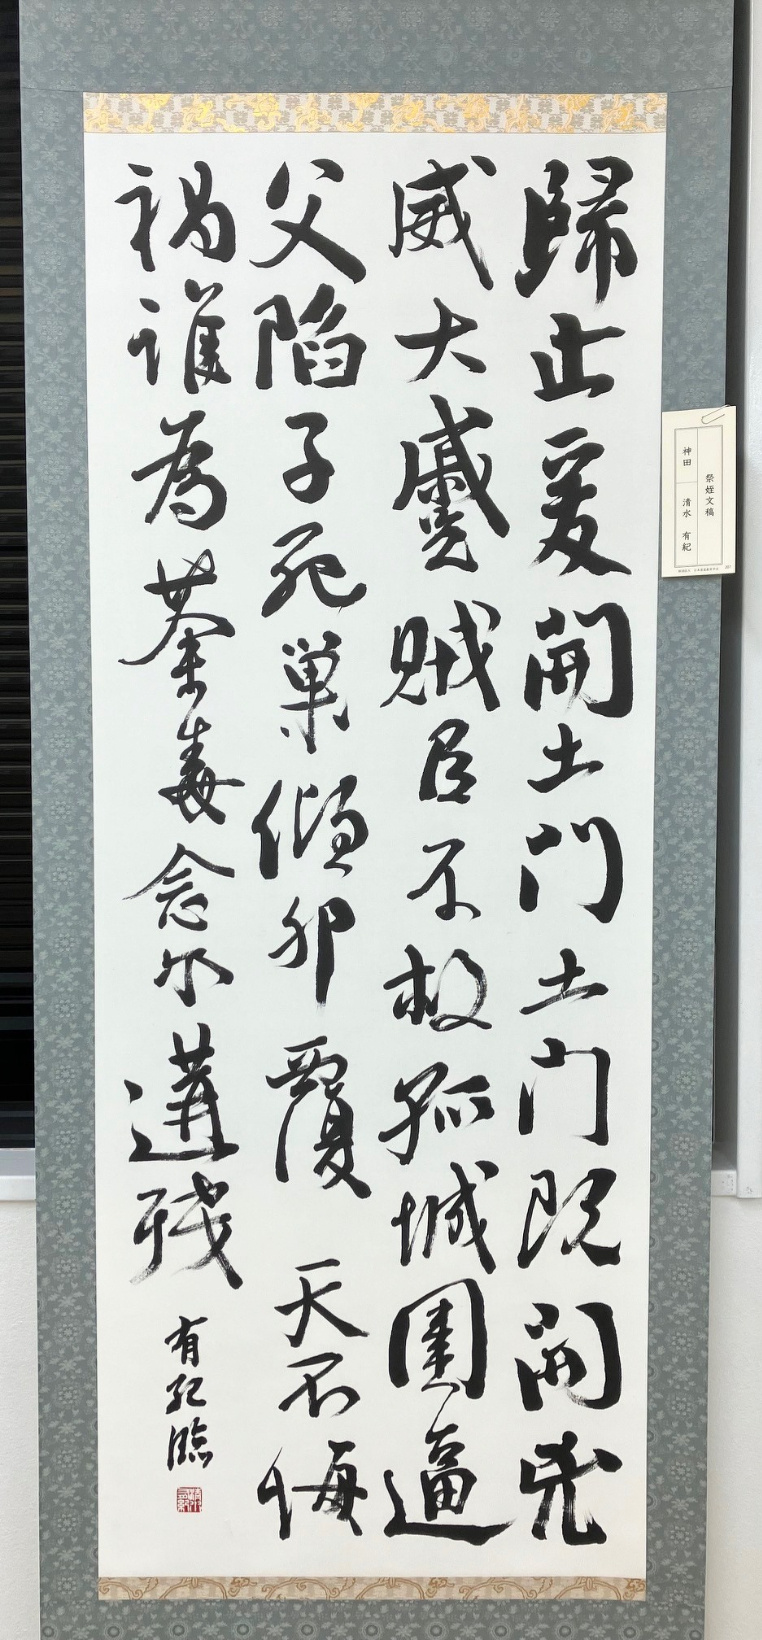 歸止爰開土門土門既開兇
威大蹙賊臣不救孤城圍逼
父陷子死巢傾卵覆 天不悔
禍誰為荼毒念尔遘残
有紀臨
祭姪文稿
神田 清水 有紀